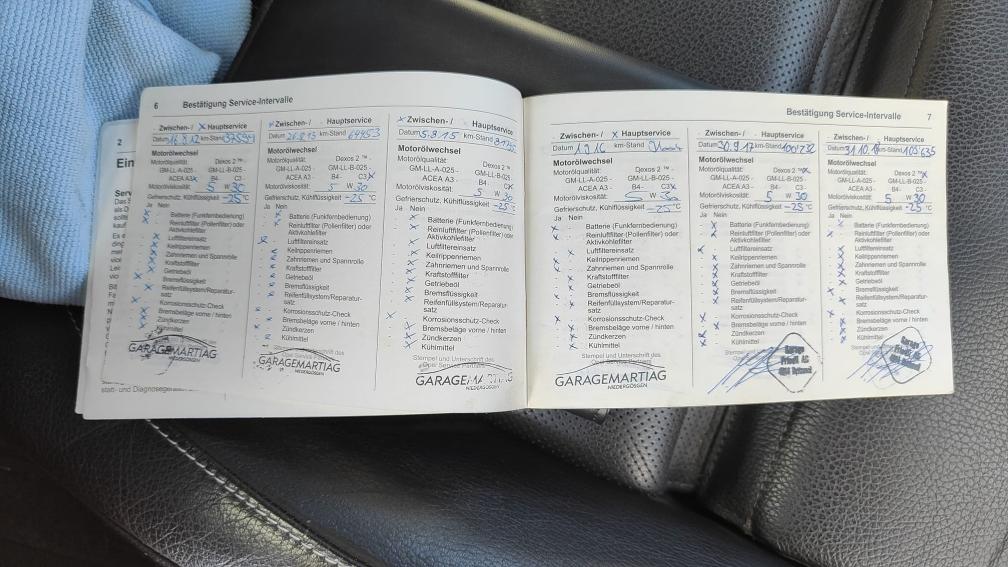 6 Bestätigung Service-Intervalle
Zwischen- / x Hauptservice
Datum 16.8.12 km-Stand
Motorölwechsel
Motorölqualität Dexos 2™ -
GM-LL-A-025 - GM-LL-B-025 -
ACEA A3 x B4- C3
Motorölviskosität: 5 W 30
Gefrierschutz, Kühlflüssigkeit -25 °C
Ja Nein
Batterie (Funkfernbedienung)
Reinluftfilter (Pollenfilter) oder
Aktivkohlefilter
Luftfiltereinsatz
Keilrippenriemen
Zahnriemen und Spannrolle
Kraftstofffilter
Getriebeöl
Bremsflüssigkeit
Reifenfüllsystem/Reparatur-
satz
Korrosionsschutz-Check
Bremsbeläge vorne / hinten
Zündkerzen
Kühlmittel
GARAGEMARTIAG
NIEDERGÖSGEN
x Zwischen- / Hauptservice
Datum km-Stand 64453
Motorölwechsel
Motorölqualität Dexos 2™ -
GM-LL-A-025 - GM-LL-B-025 -
ACEA A3 - B4- C3 x
Motorölviskosität: 5 W 30
Gefrierschutz, Kühlflüssigkeit -25 °C
Ja Nein
Batterie (Funkfernbedienung)
Reinluftfilter (Pollenfilter) oder
Aktivkohlefilter
Luftfiltereinsatz
Keilrippenriemen
Zahnriemen und Spannrolle
Kraftstofffilter
Getriebeöl
Bremsflüssigkeit
Reifenfüllsystem/Reparatur-
satz
Korrosionsschutz-Check
Bremsbeläge vorne / hinten
Zündkerzen
Kühlmittel
Stempel und Unterschrift des
Opel Service Partners
GARAGEMARTIAG
NIEDERGÖSGEN
x Zwischen- / Hauptservice
Datum 5.8.15 km-Stand
Motorölwechsel
Motorölqualität Dexos 2™ -
GM-LL-A-025 - GM-LL-B-025 -
ACEA A3 - B4- C3 x
Motorölviskosität: 5 W 30
Gefrierschutz, Kühlflüssigkeit -25 °C
Ja Nein
Batterie (Funkfernbedienung)
Reinluftfilter (Pollenfilter) oder
Aktivkohlefilter
Luftfiltereinsatz
Keilrippenriemen
Zahnriemen und Spannrolle
Kraftstofffilter
Getriebeöl
Bremsflüssigkeit
Reifenfüllsystem/Reparatur-
satz
Korrosionsschutz-Check
Bremsbeläge vorne / hinten
Zündkerzen
Kühlmittel
Stempel und Unterschrift des
Opel Service Partners
GARAGEMARTIAG
NIEDERGÖSGEN
Bestätigung Service-Intervalle 7
Zwischen- / x Hauptservice
Datum km-Stand
Motorölwechsel
Motorölqualität Dexos 2™ -
GM-LL-A-025 - GM-LL-B-025 -
ACEA A3 - B4- C3 x
Motorölviskosität: 5 W 30
Gefrierschutz, Kühlflüssigkeit -25 °C
Ja Nein
Batterie (Funkfernbedienung)
Reinluftfilter (Pollenfilter) oder
Aktivkohlefilter
Luftfiltereinsatz
Keilrippenriemen
Zahnriemen und Spannrolle
Kraftstofffilter
Getriebeöl
Bremsflüssigkeit
Reifenfüllsystem/Reparatur-
satz
Korrosionsschutz-Check
Bremsbeläge vorne / hinten
Zündkerzen
Kühlmittel
Stempel und Unterschrift des
Opel Service Partners
GARAGEMARTIAG
NIEDERGÖSGEN
Zwischen- / Hauptservice
Datum 30.9.17 km-Stand 100'232
Motorölwechsel
Motorölqualität Dexos 2™ x
GM-LL-A-025 - GM-LL-B-025 -
ACEA A3 - B4- C3 -
Motorölviskosität: 5 W 30
Gefrierschutz, Kühlflüssigkeit -25 °C
Ja Nein
Batterie (Funkfernbedienung)
Reinluftfilter (Pollenfilter) oder
Aktivkohlefilter
Luftfiltereinsatz
Keilrippenriemen
Zahnriemen und Spannrolle
Kraftstofffilter
Getriebeöl
Bremsflüssigkeit
Reifenfüllsystem/Reparatur-
satz
Korrosionsschutz-Check
Bremsbeläge vorne / hinten
Zündkerzen
Kühlmittel
Garage
Zwischen- / Hauptservice
Datum 31.10.18 km-Stand 105'635
Motorölwechsel
Motorölqualität Dexos 2™ x
GM-LL-A-025 - GM-LL-B-025 -
ACEA A3 - B4- C3 -
Motorölviskosität: 5 W 30
Gefrierschutz, Kühlflüssigkeit -25 °C
Ja Nein
Batterie (Funkfernbedienung)
Reinluftfilter (Pollenfilter) oder
Aktivkohlefilter
Luftfiltereinsatz
Keilrippenriemen
Zahnriemen und Spannrolle
Kraftstofffilter
Getriebeöl
Bremsflüssigkeit
Reifenfüllsystem/Reparatur-
satz
Korrosionsschutz-Check
Bremsbeläge vorne / hinten
Zündkerzen
Kühlmittel
Garage
2
Ein
statt- und Diagnosege